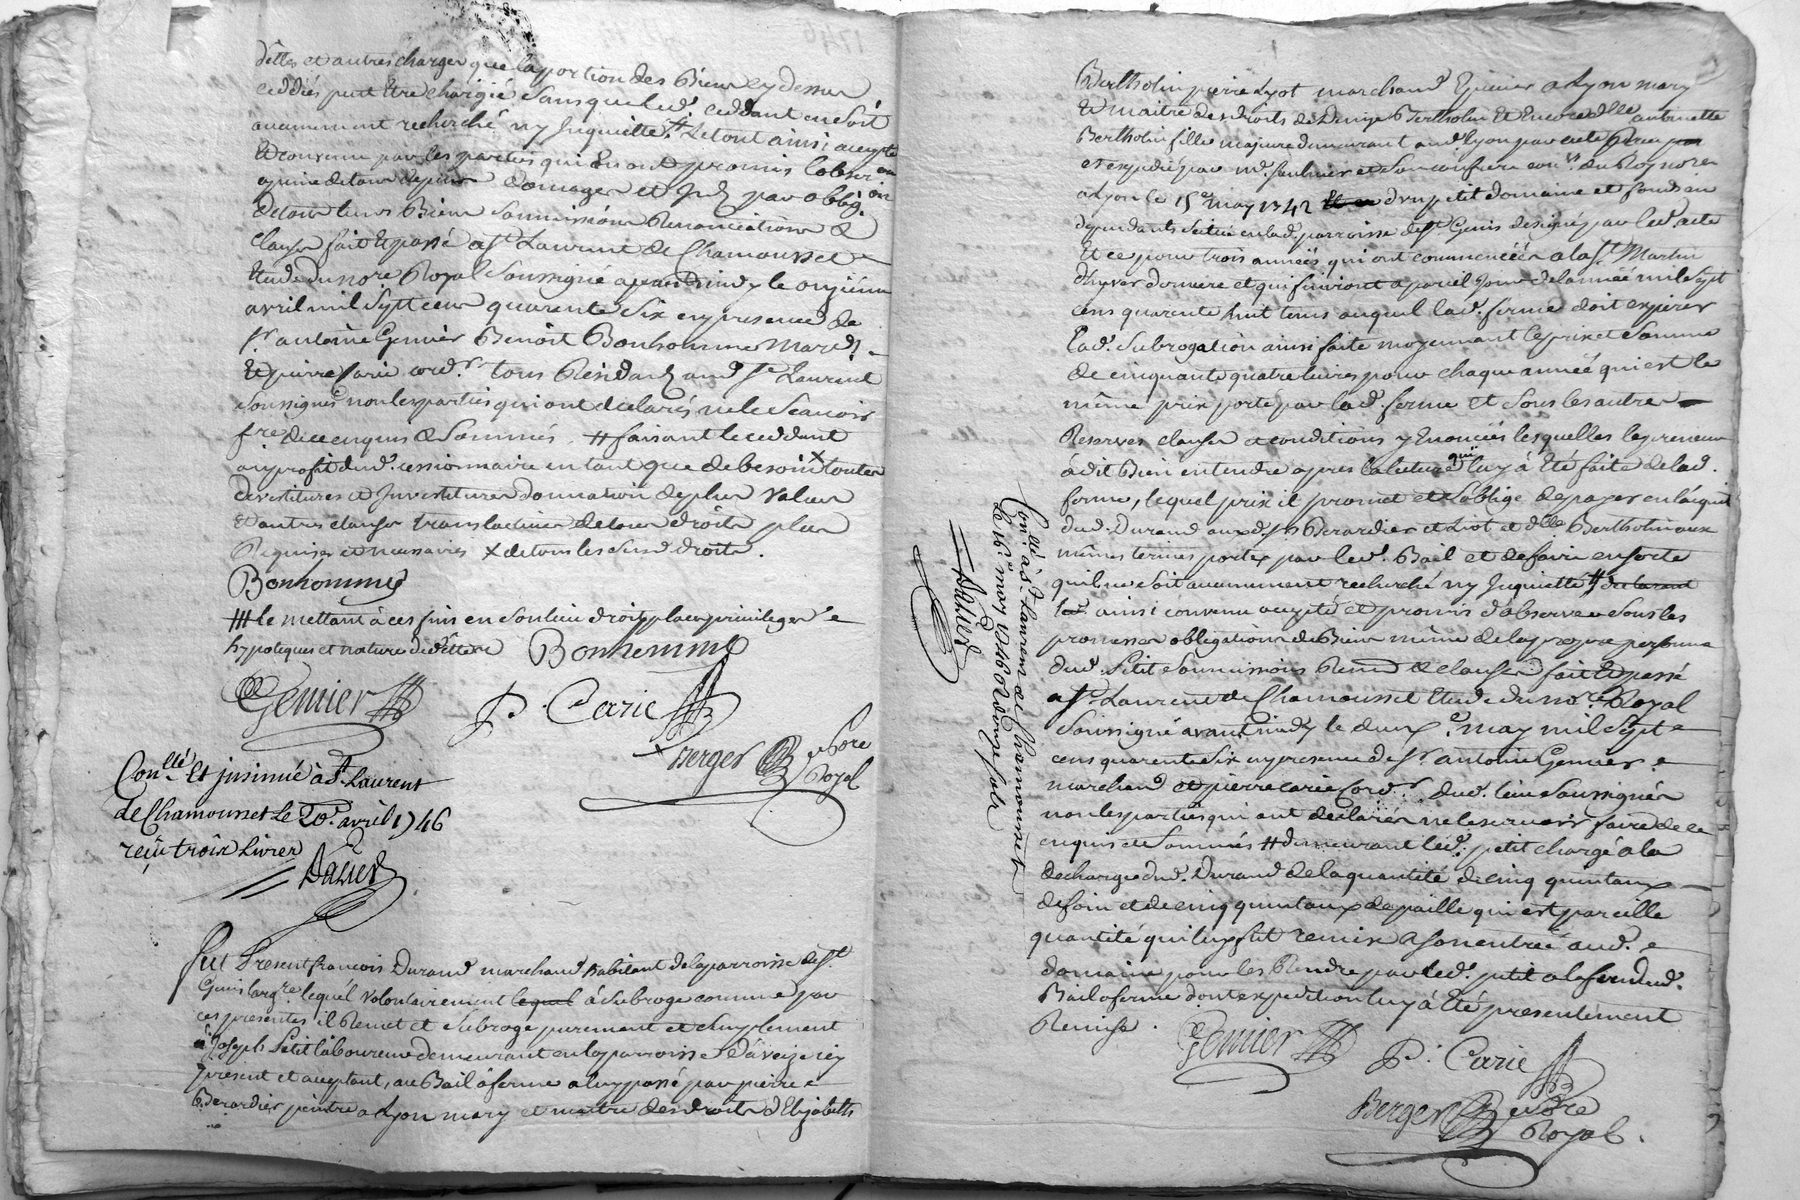 dettes et autres charges que la portion des Biens cy dessus
ceddés peut Etre chargié sans que led. ceddant en soit
aucunement recherché ny Inquietté # Le tout ainsi accepté
Et convenu par les parties qui En ont promis l'observ.on
a peine de tous depens domages et par oblig.on
de tous leurs Biens soumissions Renonciations &
clauses fait Et passé a St. Laurent de Chamousset
Etude du nore Royal soussigné avant midy le onzième
avril mil sept cens quarente six en presence de
Sr. antoine Genier Benoit Bonhomme March.d
Et pierre Carie cord.r tous Résidants aud. St. Laurent
soussignés non les parties qui ont declarés ne le scavoir
f.re de ce enquis & sommés. # faisant le ceddant
au profit dud. cessionnaire en tant que de besoin x toutes
devestitures et Investitures donnation de plus value
Et autres clauses translatives de tous droits plus
Requises et necessaires x de tous les susd. droits.
Bonhomme
# le mettant à ces fins en son lieu droit place privileges
hypoteques et nature de dette Bonhomme
Genier P. Carie
Berger nore Royal
Con.llé Et insinué à St. Laurent
de Chamousset Le 20e. avril 1746
reçu trois Livres
Dasier
Fut Present francois Durand marchand habitant de la parroisse de St.
Genis largre. lequel volontairement lequel à subrogé comme par
ces presentes il Remet et subroge purement et simplement
à Joseph Petit laboureur demeurant en la parroisse d'aveize icy
present et acceptant, au Bail à ferme a luy passé par pierre
Berardier peintre a Lyon mary et maitre des droits d'Elizabeth
Bertholin pierre Lyot marchand Epicier a Lyon mary
Et maitre des droits de Denize Bertholin Et Encore dlle antoinette
Bertholin fille majeure demeurant aud. Lyon par acte
et expedié par Me. Saulnier et son confrere con.rs du Roy nores
a Lyon le 15e may 1742 d'un petit domaine et fonds en
dependants scitué en lad. parroisse de St. Genis designé par led. acte
Et ce pour trois années qui ont commencées a la St. Martin
d'hyver derniere et qui finiront a pareil Jour de l'année mil sept
cens quarente huit tems auquel lad. ferme doit expirer
Lad. Subrogation ainsi faite moyennant le prix et somme
de cinquante quatre livres pour chaque année qui est le
même prix porté par lad. ferme Et sous les autres
Reserves clauses et conditions y Enoncées lesquelles le preneur
à dit Bien entendre apres la lecture qui luy à Eté faite de lad.
ferme, lequel prix il promet et s'oblige de payer en l'acquit
dud. Durand auxd. Srs. Berardier et Liot et dlle. Bertholin aux
mêmes termes portés par led. Bail et de faire en sorte
qu'il ne soit aucunement recherché ny Inquietté # declarant
led. ainsi convenu accepté et promis d'observer sous les
promesses obligations de Biens même de la propre personne
dud. Petit soumissions Renon. & clauses fait Et passé
a St. Laurent de Chamousset Etude du nore. Royal
soussigné avant midy le deuxe. may mil sept
cens quarente six en presence de Sr. antoine Genier
marchand et pierre carie Cord.r dud. lieu soussignés
non les parties qui ont declarées ne le scavoir faire de ce
enquis et sommés # demeurant led. petit chargé a la
decharge dud. Durand de la quantité de cinq quintaux
de foin et de cinq quintaux de paille qui est pareille
quantité qui luy fut remise a son entrée aud.
domaine pour les Rendre par led. petit a la fin dud.
Bail a ferme dont expedition luy à Eté presentement
Remise.
Genier P. Carie
Berger nore
Royal.
Con.llé à St. Laurent de Chamousset
Le 16e. may 1746 R. douze sols
Dasier